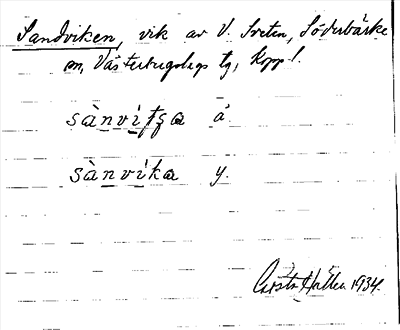 Sandviken, vik av V. Sveten, Söderbärke
sn, Västerbergslags tg, Kopp l.
sànvitʂa ä.
sànvika y.
Hallén 1934.